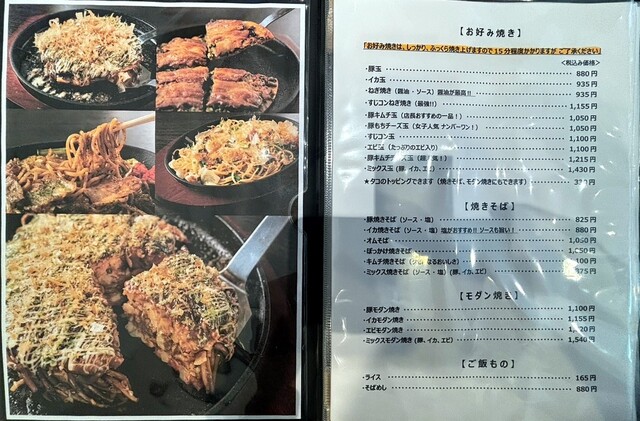 【お好み焼き】
「お好み焼きは、しっかり、ふっくら焼き上げますので15分程度かかりますが ご了承ください」
<税込み価格>
・豚玉 880円
・イカ玉 935円
・ねぎ焼き（醤油・ソース）醤油が最高!! 935円
・すじコンねぎ焼き（最強!!） 1,155円
・豚キムチ玉（店長おすすめの一品！） 1,050円
・豚もちチーズ玉（女子人気 ナンバーワン！） 1,050円
・すじコン玉 1,100円
・エビ玉（たっぷりのエビ入り） 1,100円
・豚キムチチーズ玉 1,215円
・ミックス玉（豚、イカ、エビ） 1,430円
★タコのトッピングできます（焼きそば、モダン焼きにもできます） 円
【焼きそば】
・豚焼きそば（ソース・塩） 825円
・イカ焼きそば（ソース・塩）塩がおすすめ!! ソースも旨い！ 880円
・オムそば 円
・ぼっかけ焼きそば 円
・キムチ焼きそば 円
・ミックス焼きそば（ソース・塩）（豚、イカ、エビ） 円
【モダン焼き】
・豚モダン焼き 1,100円
・イカモダン焼き 1,155円
・エビモダン焼き 円
・ミックスモダン焼き（豚、イカ、エビ） 1,540円
【ご飯もの】
・ライス 165円
・そばめし 880円